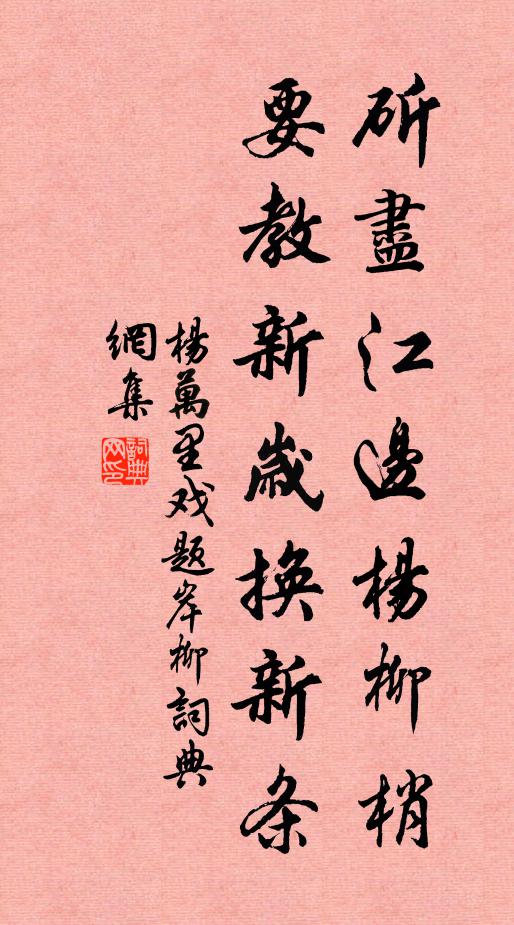 斫盡江邊楊柳梢
要教新歲換新条
楊萬里戏题岸柳詞典
網集
詞典
网印